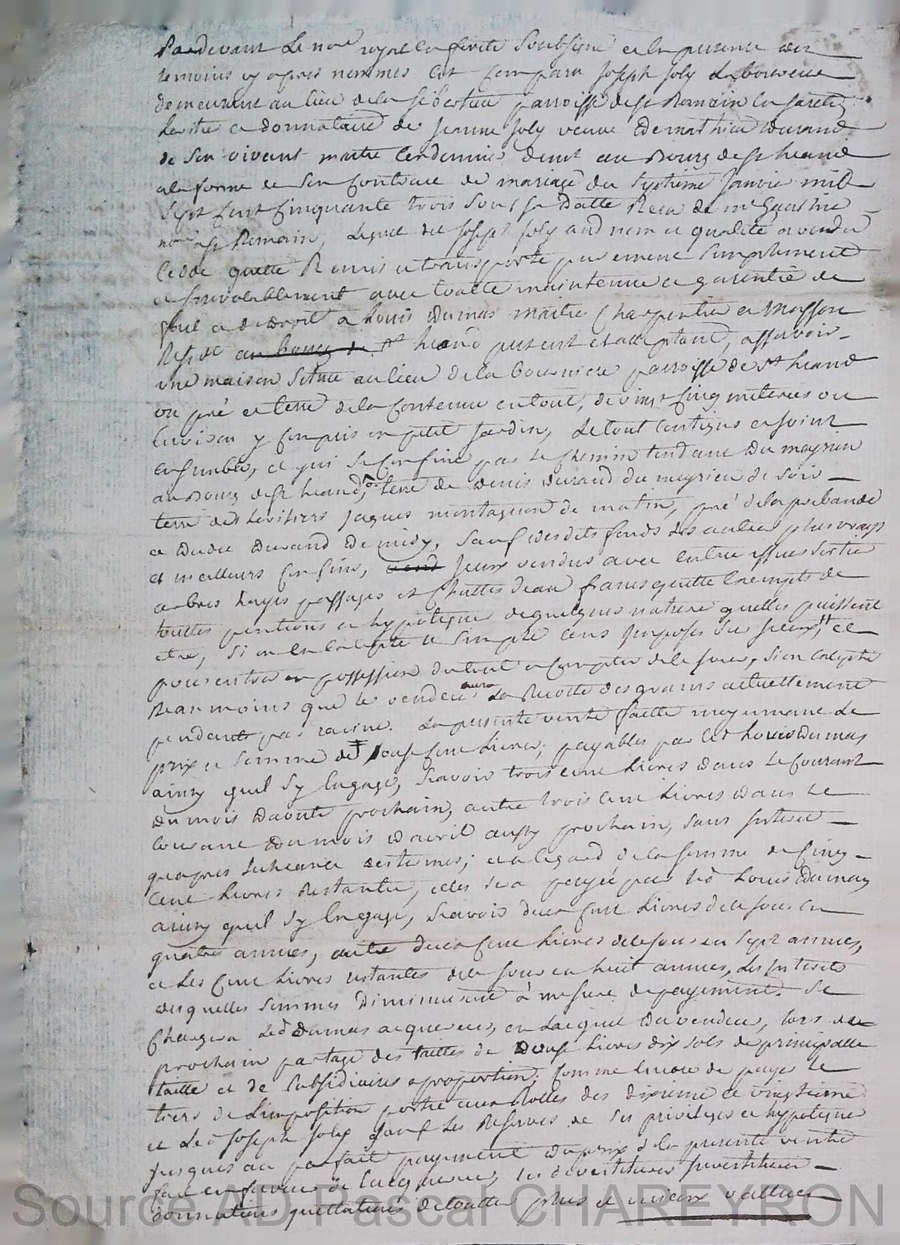 Pardevant Le no.re royal En forets Soubsigne et En presence des
temoins cy apres nommes Est Comparu Joseph Joly Laboureur
demeurant au lieu de la parroisse de St Romain En forets
heritier et donnataire de Jeanne Joly veuve de mathieu Durand
de Son vivant maitre Cordonnier demt au Bourg de St heand
a la forme de Son Contract de mariage du Septieme Janvier mil
Sept Cent Cinquante trois Sous Sa datte Receu de me
no.re a St Romain, Lequel dit Joseph Joly audt nom et qualité a vendu
Cede quitte Remis et transporte purement Simplement
et Irrevocablement avec toutte maintenue et garentie de
fait et de droit a Louis Dumas maitre Charpentier et Masson
au bourg de St heand present et acceptant, assavoir
une maison Située au lieu de la parroisse de St heand
un pré et terre de la Contenue en tout, de vingt Cinq meterées ou
Environ y Compris un petit Jardin, Le tout Contigus et Joint
Ensembles, et qui Se Confine par Le Chemin tendant du mayrieu
au Bourg de St heand, terre de Denis Durand du mayrieu de Soir
terre des heritiers Jaques montagnon de matin, pré de la prebande
et Dudit Durand De midy, Sauf desdits fonds Les autres plus vrays
et meilleurs Confins, Iceux vendus avec Entrée issues Sortie
arbres hayes passages et Chuttes deau francs quitte Exempts de
touttes pentions et hypoteque de quelques nature quelles puissent
etre, Si ce nen Excepté le Simple Cens Imposes Sur Iceux, et
pour entrer en possession du tout a Compter de ce Jour, Si on Excepte
Neanmoins que le vendeur aura La Recolte des grains actuellement
pendants par racine. La presente vente faitte moyennant Le
prix et Somme de onze Cent Livres, payables par Led Louis Dumas
ainsy quil Sy Engage, Scavoir trois cent Livres dans Le Courant
Du mois Daoust prochain, autre trois Cent Livres dans Le
Courant Du mois Davril aussy prochain, Sans Interet
quapres Lecheance des termes; et a Legard de la Somme de Cinq
Cent Livres Restante, elles Sera payée par led Louis Dumas
ainsy quil Sy Engage, Scavoir deux Cent Livres de ce Jour en
quatres années, autre deux Cent Livres de ce Jour en Sept années,
et Les Cent Livres restantes de ce Jour en huit années, Les Interets
desquelles Sommes diminueront a mesure de payement. Se
Chargera Led Dumas acquereur, en Lacquit Du vendeur, lors du
prochain partage des tailles de Douze Livres dix Sols de principalle
taille et de Subsidiaires a proportion, Comme Encore de payer Le
tiers de Limposition portée aux Rolles des dixieme et vingtieme
et Led Joseph Joly Sauf Les Reserves de Ses privileges et hypoteque
Jusques au parfait payement Du prix de la presente vente
fait en faveur de Lacquereur, les devestitures Investitures
donnations quittations de toutte plus et mieux vallue
Source AD Pascal CHAREYRON